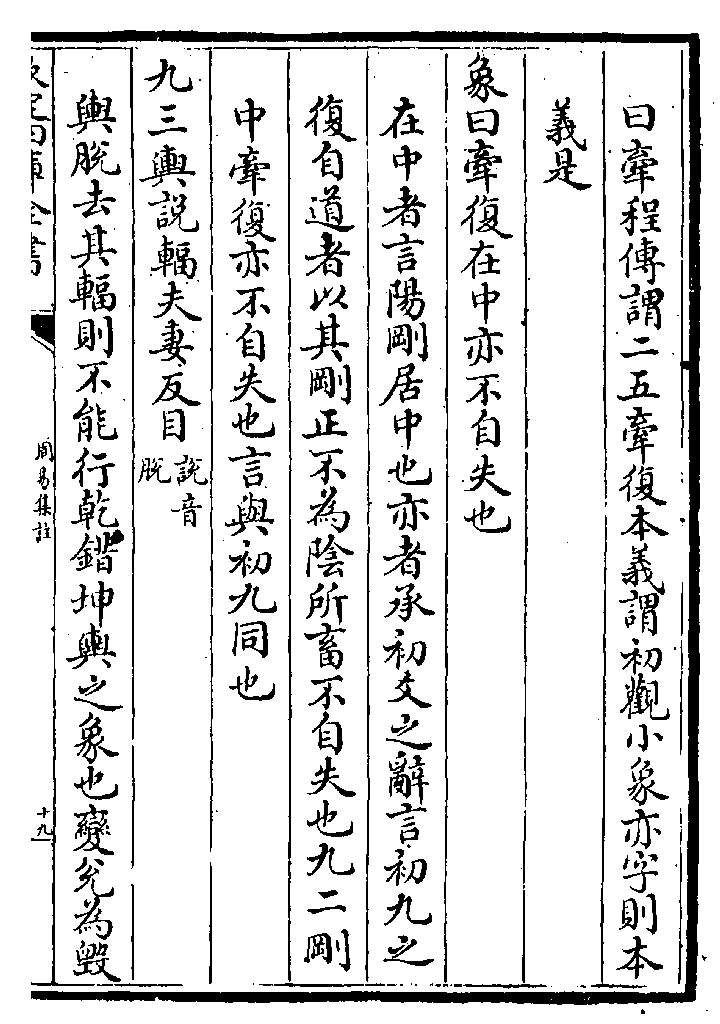 曰牽程傳謂二五牽復本義謂初觀小象亦字則本
義是
象曰牽復在中亦不自失也
在中者言陽剛居中也亦者承初爻之辭言初九之
復自道者以其剛正不為陰所畜不自失也九二剛
中牽復亦不自失也言與初九同也
九三輿説輻夫妻反目説音脫
輿脫去其輻則不能行乾錯坤輿之象也變兌為毀
欽定四庫全書
周易集註
十九